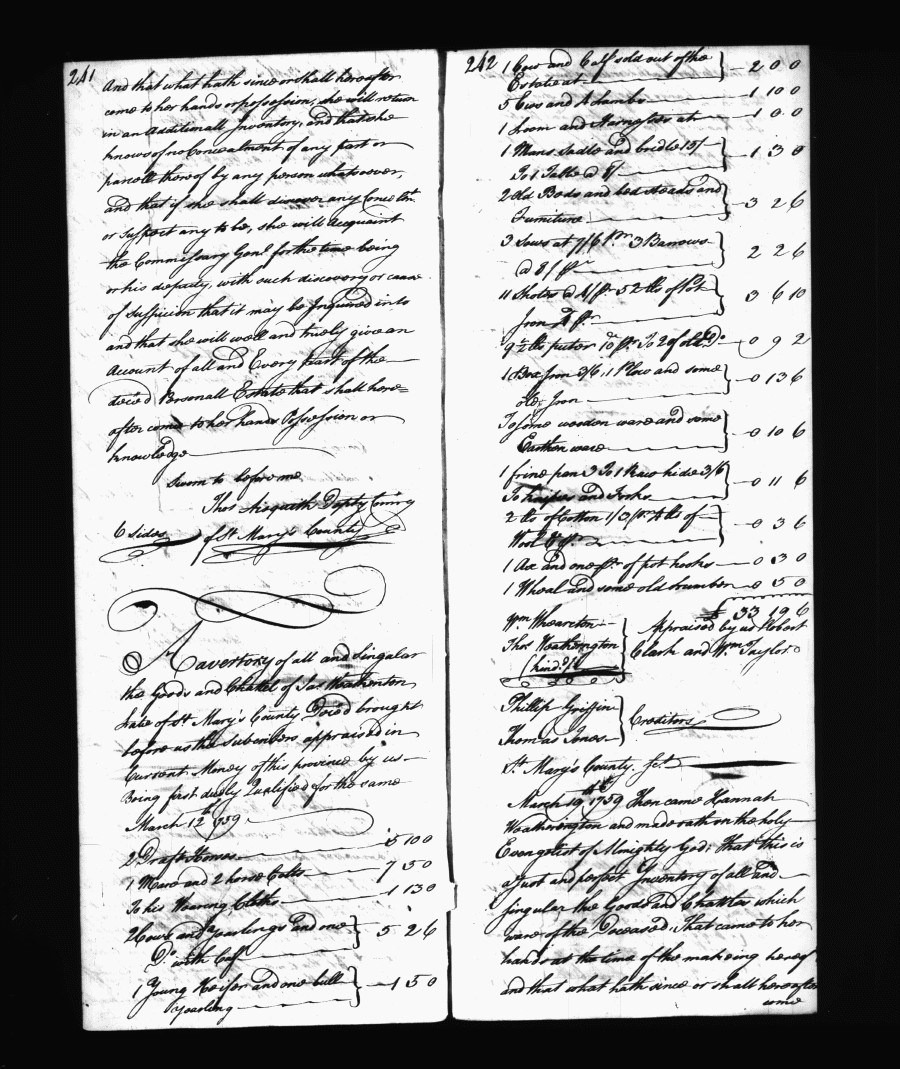 241
And that what hath since or shall hereafter
come to her hands or possession, she will return
in an additionall Inventory, and that she
knows of no Concealment of any part or
parcell thereof by any person whatsoever,
and that if she shall discover any Conceal.mt
or suspect any to be, she will Acquaint
the Commissary Genl for the time being
or his deputy, with such discovery or cause
of suspicion that it may be Inquired into
and that she will well and truely give an
account of all and Every part of the
deced Personall Estate that shall here=
after come to her hands Possession or
knowledge
Sworn to before me
Thos Aisquith Depty Com'ry
6 sides of St Mary's County
Inventory of all and Singular
the Goods and Chattel of Jas Weatherinton
late of St Mary's County Deced brought
before us the Subcribers appraised in
Current Money of this province by us
Being first duely Qualified for the same
March 12th 1759
2 Draft Horses 5 10 0
1 Mare and 2 horse Colts 7 5 0
To his Wearing Cloths 1 13 0
2 Cows and Yearlings and one
Do with Calf 5 2 6
1 Young Heifer and one bull
Yearling 1 5 0
242
1 Cow and Calf sold out of the
Estate at 2 0 0
5 Ews and 4 Lambs 1 10 0
1 Loom and Harnesses at 1 0 0
1 Mans Sadle and bridle 15/
To 1 Table @ 8/ 1 3 0
2 old Beds and bed steads and
Furniture 3 2 6
3 Sows at 7/6 pr 3 Barrows
@ 8/ pr 2 2 6
11 Shotes @ 4/ pr 52 lbs of Pot
Iron 4 pr 3 6 10
9 1/2 lbs puter 10 pr To 2 of old Do 0 9 2
1 Box Iron 3/6, 1 Plow and some
old Iron 0 13 6
To some wooden ware and some
Earthen ware 0 10 6
1 frine pan 3 To 1 Raw hide 3/6
To knifes and Forks 0 11 6
2 lbs of Cotton 1/3 pr 4 lbs of
Wool 0 3 6
1 Ax and one pr of pot hooks 0 3 0
1 Wheal and some old 0 5 0
£ 33 19 6
Wm Wheareton
Thos Weatherington
Kind.d
Appraised by us Robert
Clark and Wm Taylor
Phillip Griffin
Thomas Jones
Creditors
St Mary's County. Sct
March 19th 1759 Then came Hannah
Weatherington and made oath on the holy
Evangelist of Almighty God; That this is
a just and perfect Inventory of all and
singular the Goods and Chattles which
ware of the Deceased; That came to her
hands at the time of the makeing hereof
and that what hath since or shall hereafter
come